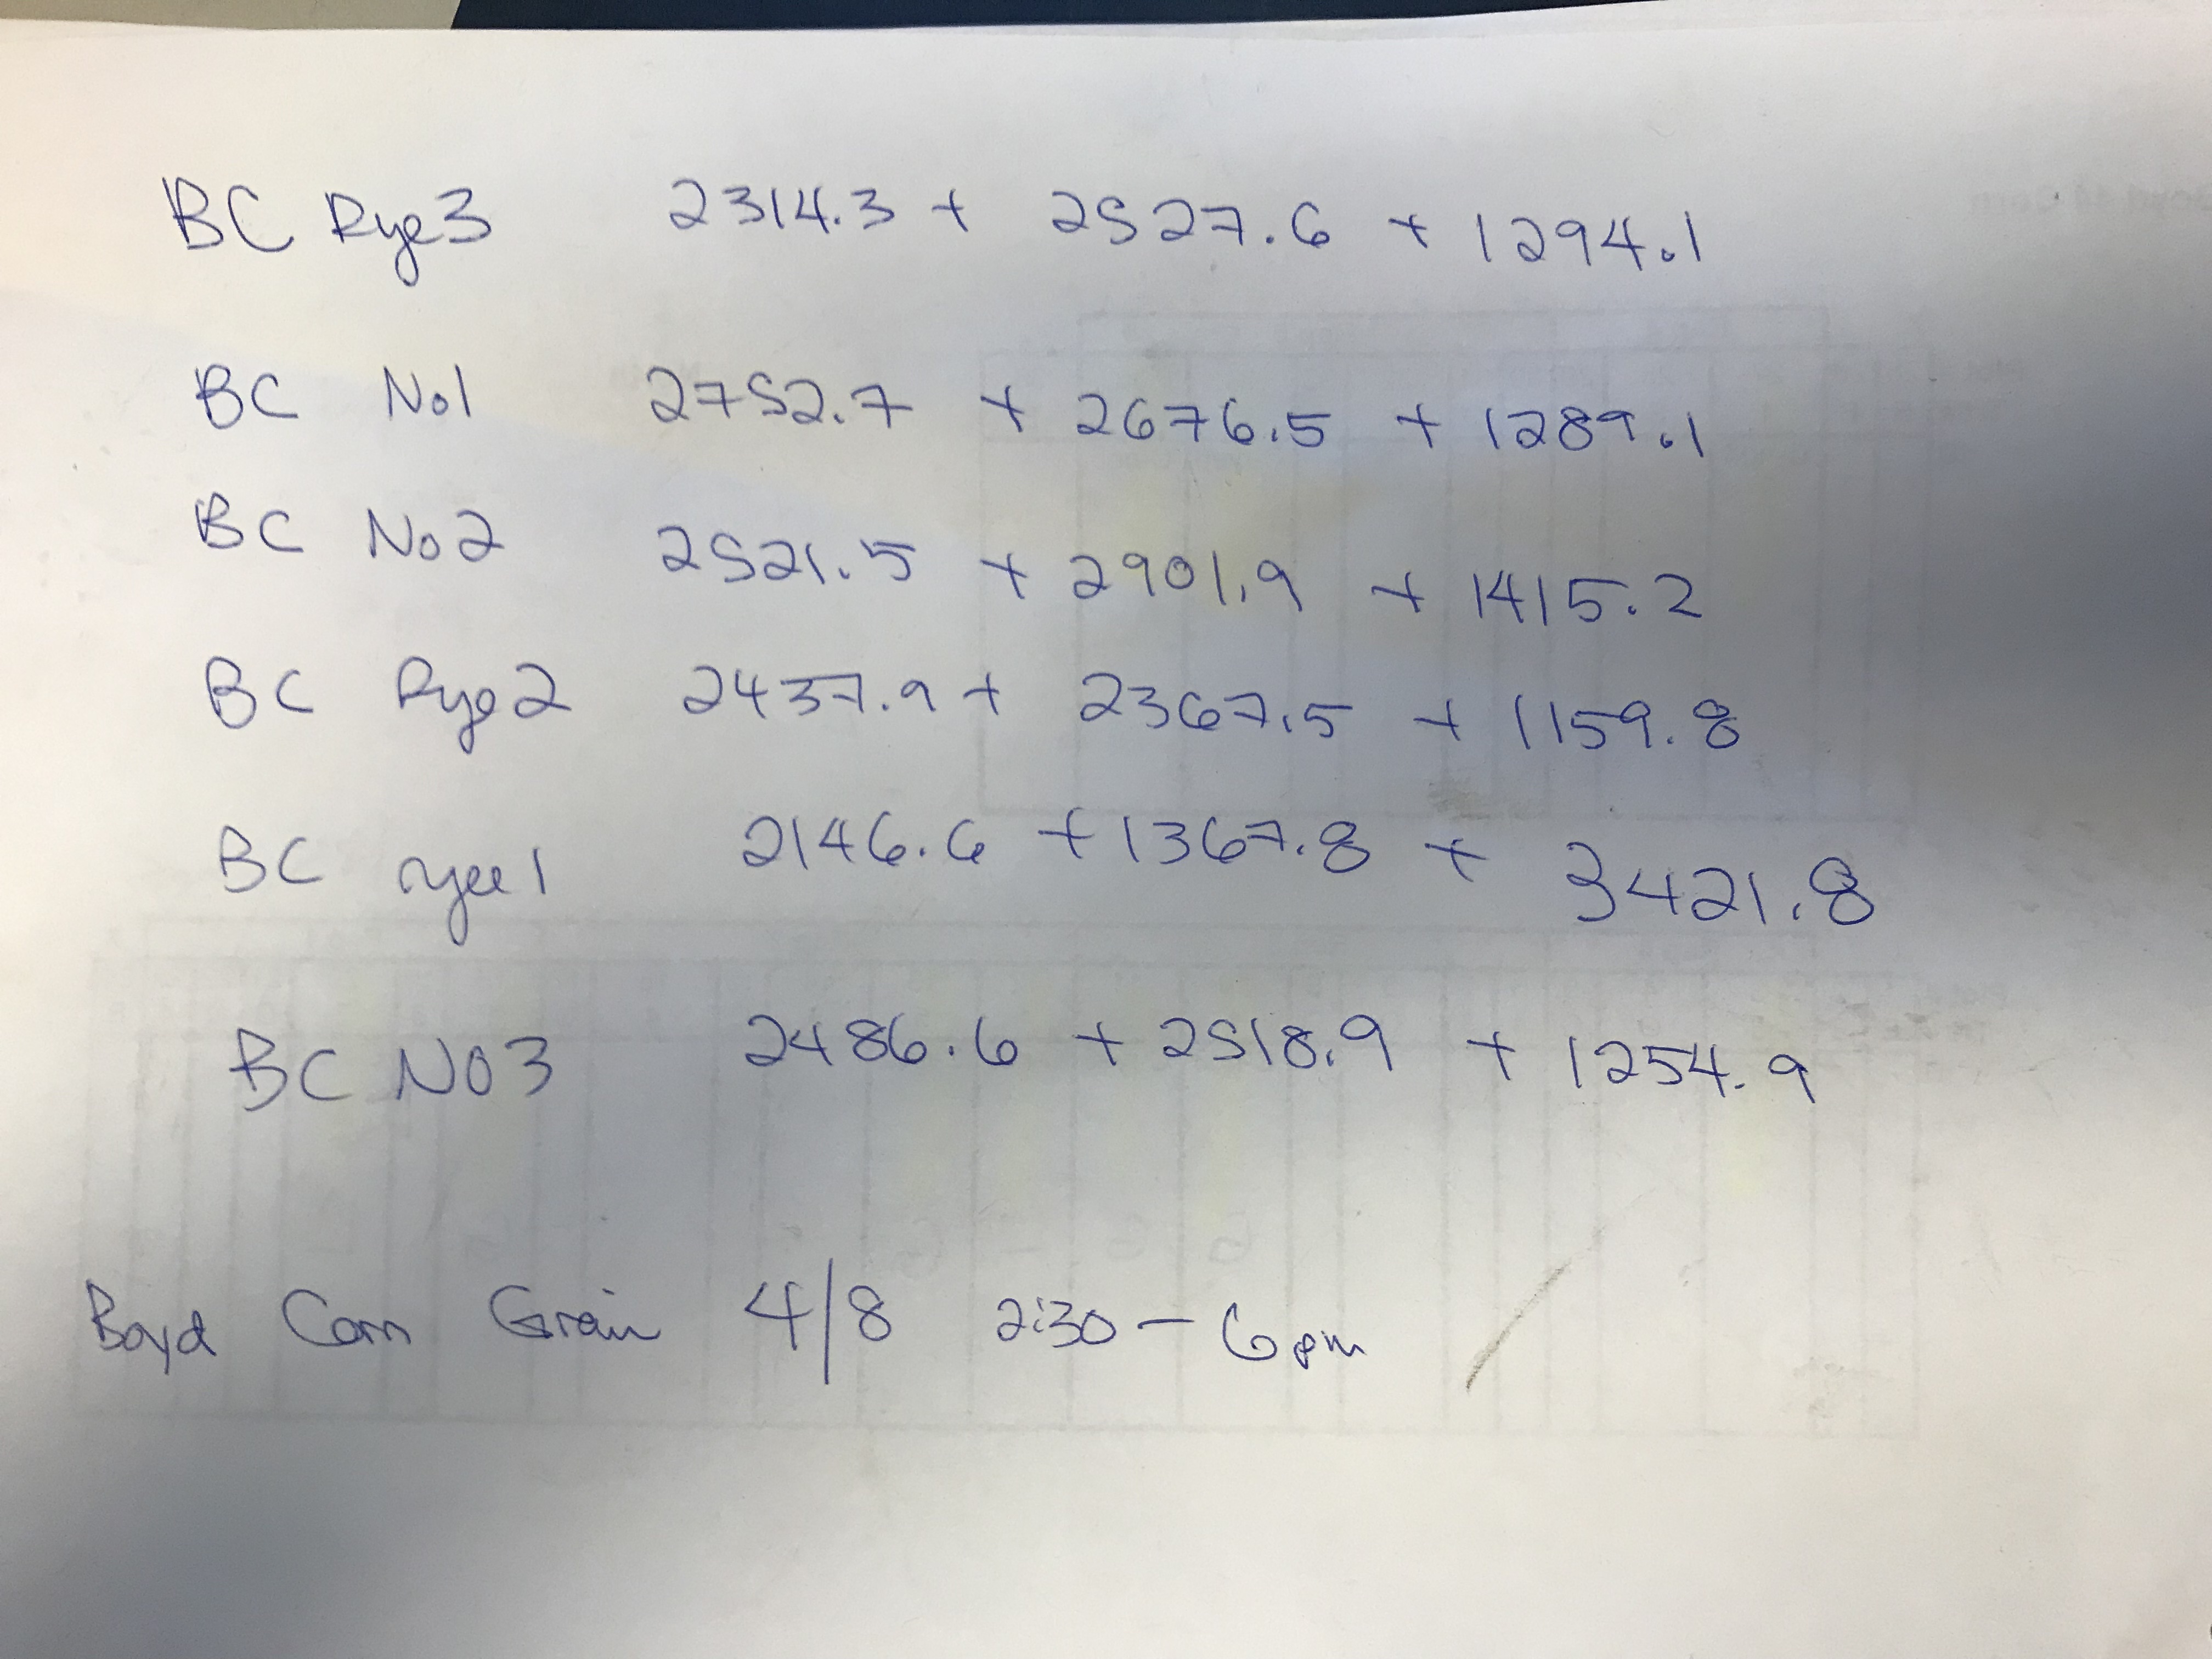 BC Rye3 2314.3 + 2527.6 + 1294.1
BC No1 2752.7 + 2676.5 + 1289.1
BC No2 2521.5 + 2901.9 + 1415.2
BC Rye2 2437.9 + 2367.5 + 1159.8
BC ryee1 2146.6 + 1367.8 + 3421.8
BC NO3 2486.6 + 2518.9 + 1254.9
Boyd Corn Grain 4/8 2:30 - 6pm